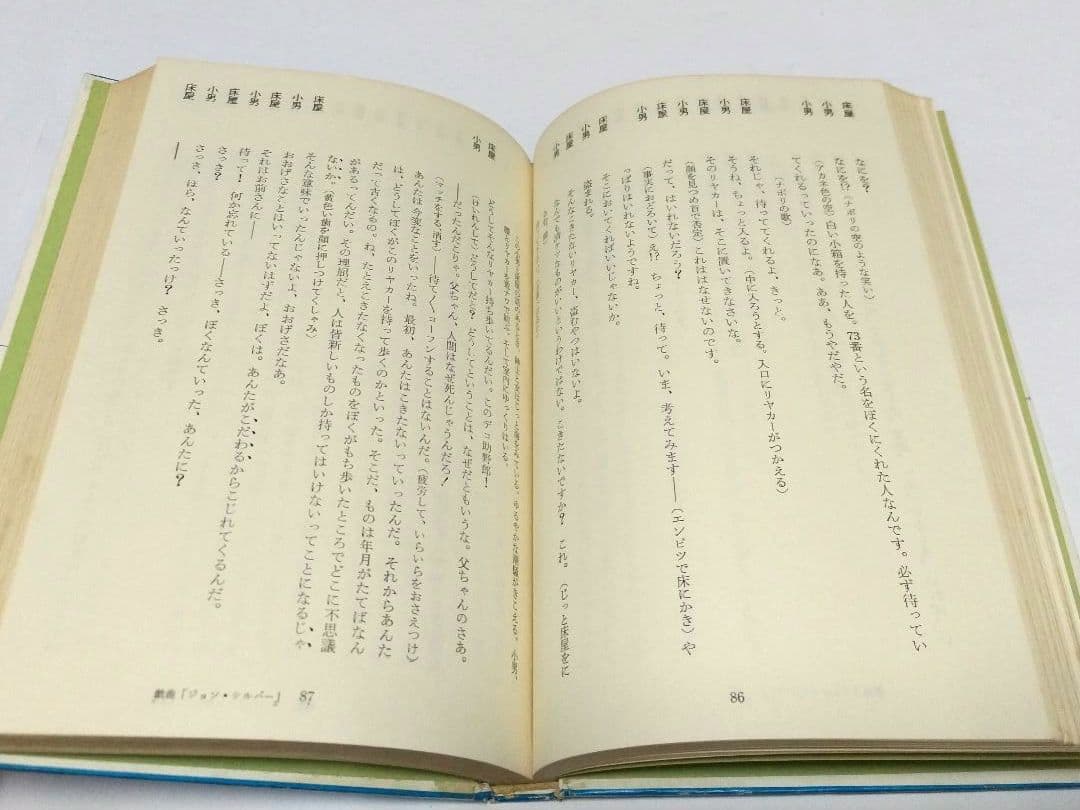 床屋　なにを？（ナポリの空のような笑い）
小男　なにを!?（アカネ色の空）白い小箱を持った人を。73番という名をぼくにくれた人なんです。必ず待ってい
てくれるっていったのになあ。ああ、もうやだやだ。
小男　（ナポリの歌）
床屋　それじゃ、待っててくれるよ、きっと。
小男　そうね、ちょっと入るよ。（中に入ろうとする。入口にリヤカーがつかえる）
床屋　そのリヤカーは、そこに置いてきなさいな。
小男　（顔を見つめ首で否定）これははなせないのです。
床屋　だって、はいれないだろう？
小男　（事実におどろいて）え!?　ちょっと、待って。いま、考えてみます――（エンピツで床にかき）や
っぱりはいれないようですね。
床屋　そこにおいてくればいいじゃないか。
小男　盗まれる。
床屋　そんなきたないリヤカー、盗むやつはいないよ。
小男　なんでも新しいものがいいというわけではない。こきたないですか？　これ。（じっと床屋をに
86
床屋　どうしてそんなリヤカー持ち歩いてるんだい。このデコ助野郎！
小男　（けいれんして）どうしてだと？　どうしてということは、なぜだともいうな。父ちゃんのさあ。
――だったんだこりゃ。父ちゃん、人間はなぜ死んじゃうんだろ！
床屋　（マッチをする、消す）――待てく／コーフンすることはないんだ。（疲労して、いらいらをおさえつけ）
小男　あんたは今変なことをいったね。最初、あんたはこきたないっていったんだ。それからあんた
は、どうしてぼくがこのリヤカーを持って歩くのかといった。そこだ、ものは年月がたてばなん
だって古くなるもの。ね、たとえこきたなくなったものをぼくがもち歩いたところでどこに不思議
があるってんだい。その理屈だと、人は皆新しいものしか持ってはいけないってことになるじゃ
ないか。（黄色い歯を顔に押しつけてくしゃみ）
床屋　そんな意味でいったんじゃないよ、おおげさだなあ。
小男　おおげさなことはいってないはずだよ、ぼくは。あんたがこだわるからこじれてくるんだ。
床屋　それはお前さんに――
小男　待って！　何か忘れている――さっき、ぼくなんていった、あんたに？
床屋　さっき？
小男　さっき、ほら、なんていったっけ？　さっき。
床屋　――
戯曲「ジョン・シルバー」　87